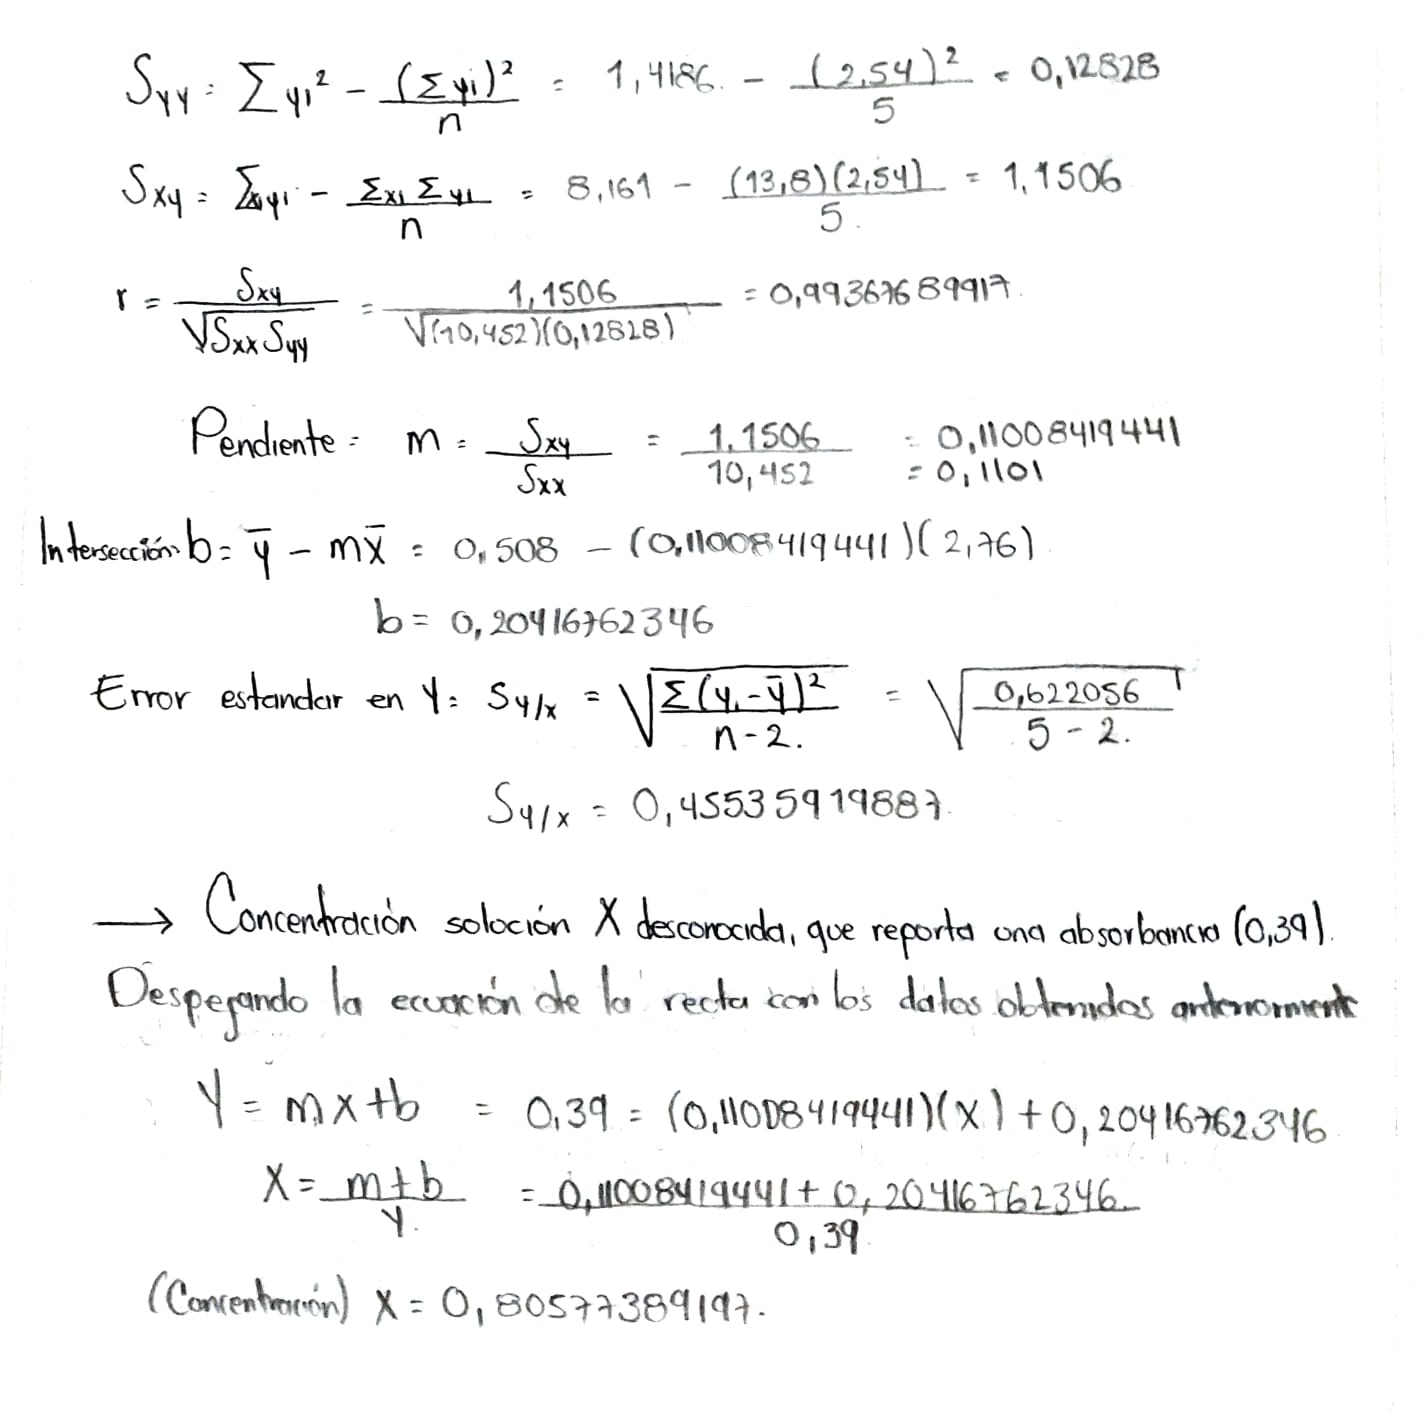 Syy = Σyi² - (Σyi)²/n = 1,4186. - (2,54)²/5 = 0,12828
Sxy = Σxiyi - Σxi Σyi/n = 8,161 - (13,8)(2,54)/5. = 1,1506
r = Sxy/√Sxx Syy = 1,1506/√(10,452)(0,12828) = 0,99367689917.
Pendiente = m = Sxy/Sxx = 1,1506/10,452 = 0,11008419441
= 0,1101
Intersección: b = ȳ - mx̄ = 0,508 - (0,11008419441)(2,76)
b = 0,20416762346
Error estandar en Y = Sy/x = √Σ(yi-ȳ)²/n-2. = √0,622056/5-2.
Sy/x = 0,45535919887.
→ Concentración soloción X desconocida, que reporta una absorbancia (0,39).
Despejando la ecuación de la recta con los datos obtenidos anteriorment
Y = mx+b = 0,39 = (0,11008419441)(x) + 0,20416762346
X = m+b/Y. = 0,11008419441 + 0,20416762346./0,39.
(Concentración) X = 0,80577389197.